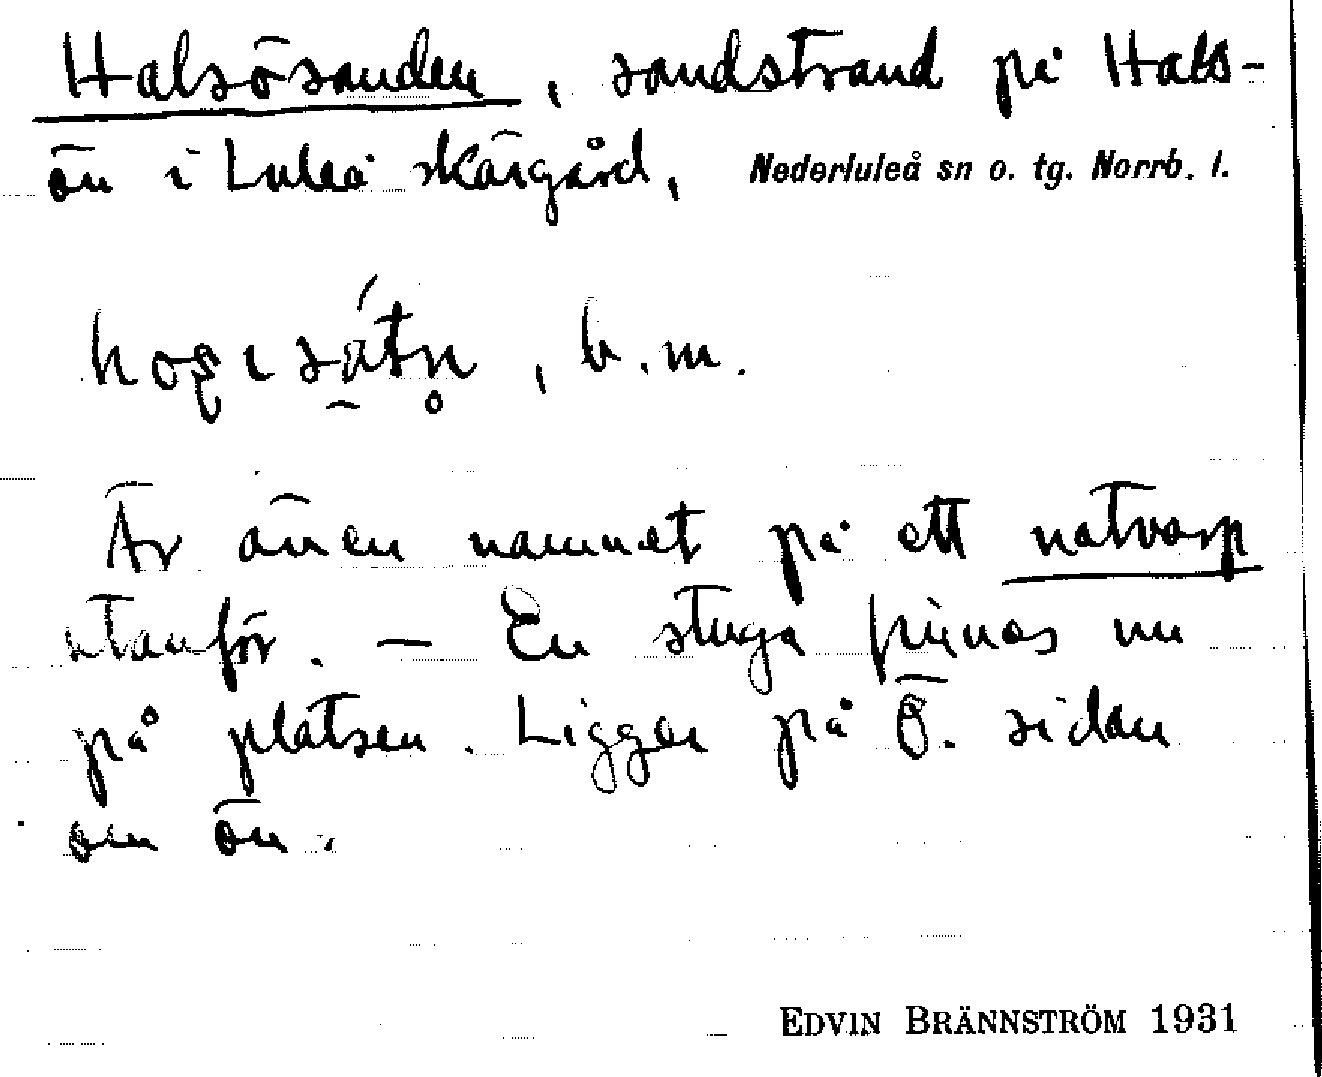 Halsösanden, sandstrand på Hals-
ön i Luleå skärgård, Nederluleå sn o. tg. Norrb. l.
, b.m.
Är även namnet på ett notvarp
utanför. — En stuga finnes nu
på platsen. Ligger på Ö. sidan
om ön.
EDVIN BRÄNNSTRÖM 1931